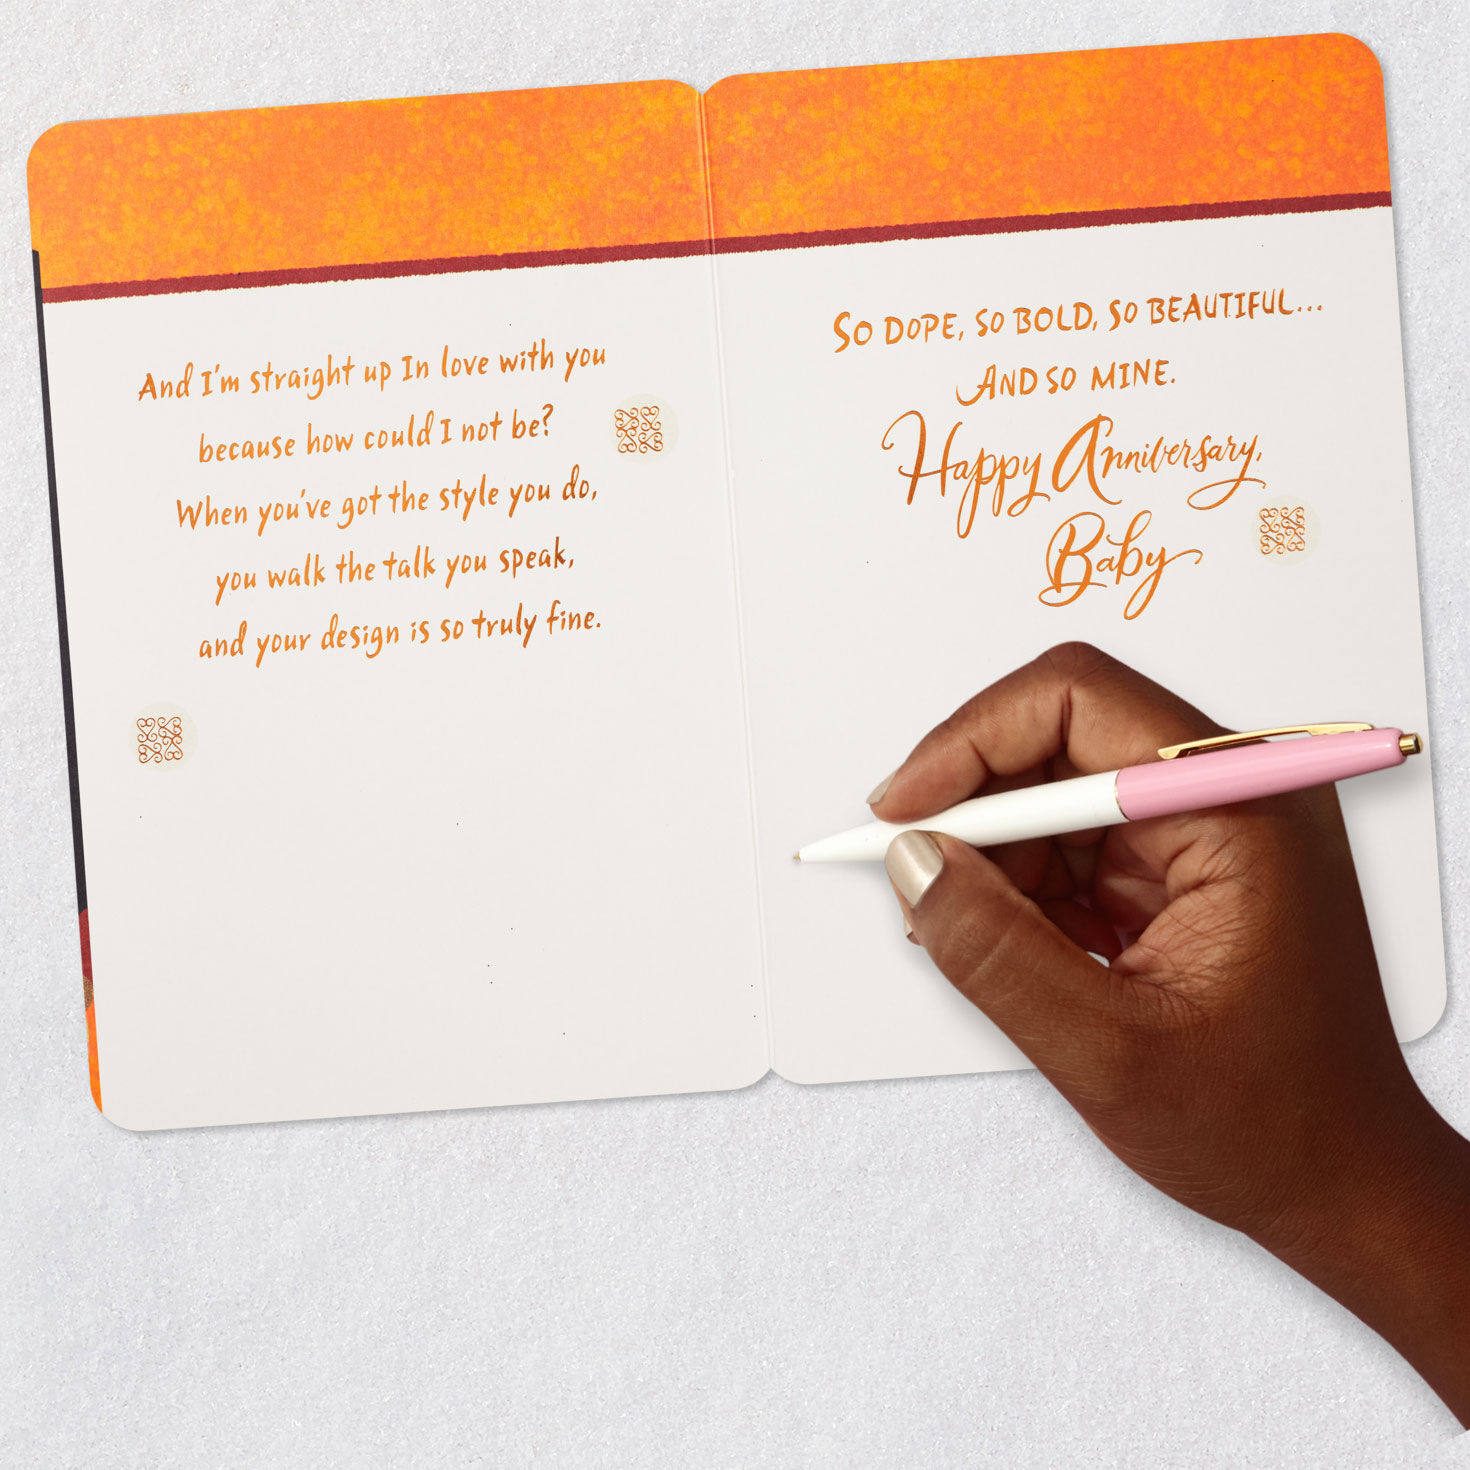 And I'm straight up In love with you
because how could I not be?
When you've got the style you do,
you walk the talk you speak,
and your design is so truly fine.
So DOPE, SO BOLD, SO BEAUTIFUL...
AND SO MINE.
Happy Anniversary,
Baby